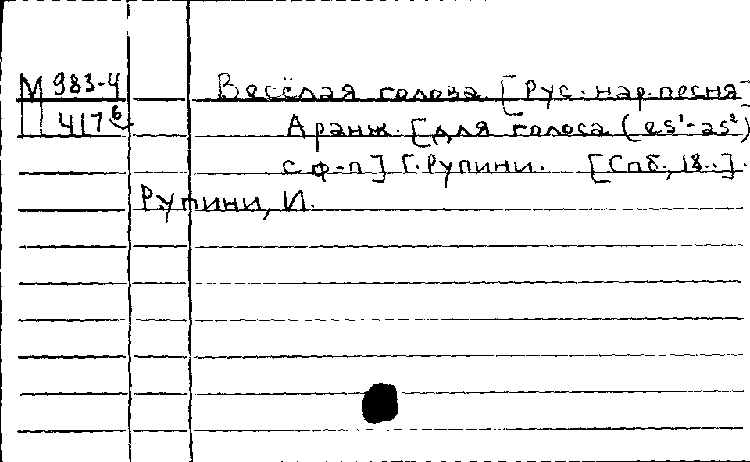 М 983-4 Весёлая голова [Рус. нар. песня
417 Аранж. [для голоса (es¹-as²)
с ф-п] Г. Рупини. [Спб., 18..].
Рупини, И.